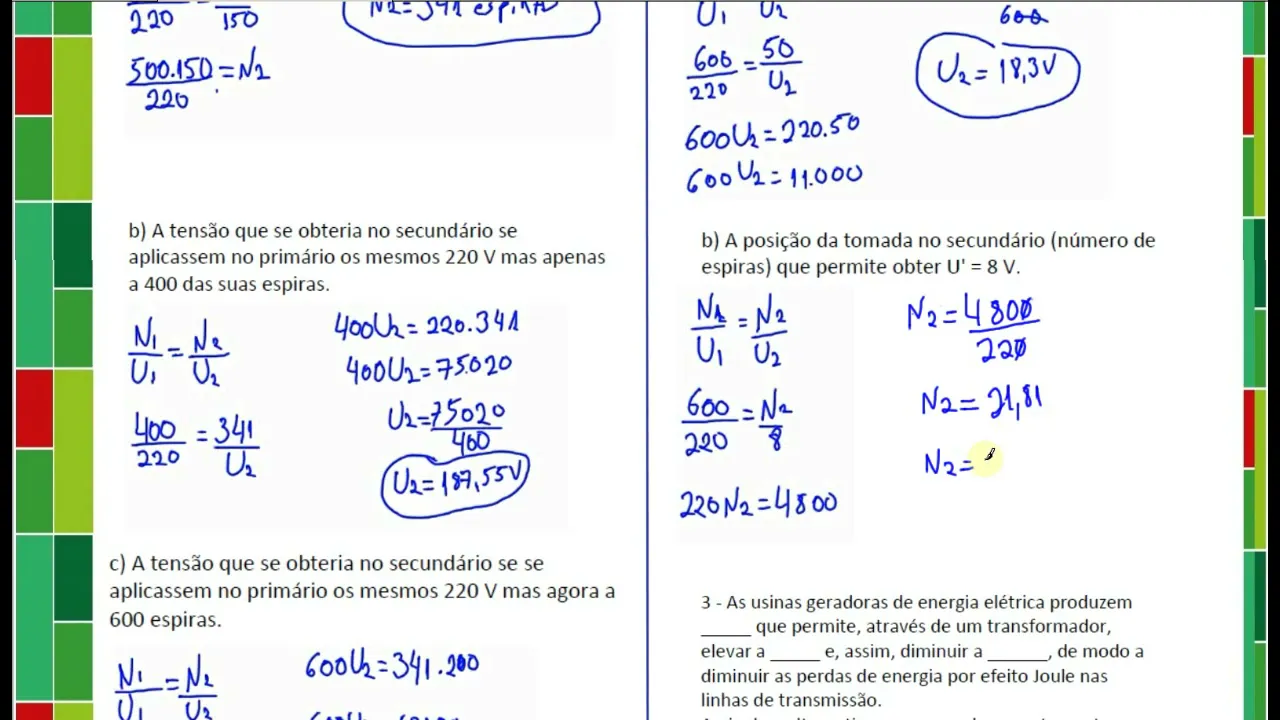 220
150
N2=341 espiras
500.150 = N2
220
b) A tensão que se obteria no secundário se
aplicassem no primário os mesmos 220 V mas apenas
a 400 das suas espiras.
N1 = N2
U1 U2
400 = 341
220 U2
400U2 = 220.341
400U2 = 75.020
U2 = 75020
400
U2 = 187,55V
c) A tensão que se obteria no secundário se se
aplicassem no primário os mesmos 220 V mas agora a
600 espiras.
N1 = N2
U1 U2
600U2 = 341.200
U1 U2
600 = 50
220 U2
600U2 = 220.50
600U2 = 11.000
600
U2 = 18,3V
b) A posição da tomada no secundário (número de
espiras) que permite obter U' = 8 V.
N1 = N2
U1 U2
600 = N2
220 8
220N2 = 4800
N2 = 4800
220
N2 = 21,81
N2 =
3 - As usinas geradoras de energia elétrica produzem
_____ que permite, através de um transformador,
elevar a _____ e, assim, diminuir a ______, de modo a
diminuir as perdas de energia por efeito Joule nas
linhas de transmissão.